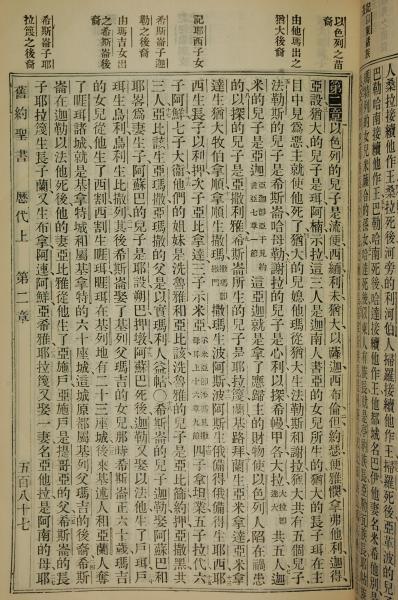 人桑拉接續他作王桑拉死後河旁的利河伯人掃羅接續他作王掃羅死後
巴勒哈南接續他作王巴勒哈南死後哈達接續他作王他都城名巴伊他妻名米希他別是
以色列之苗裔
由他瑪出之猶大後裔
記耶西子女
希斯崙子迦勒之後裔
由瑪吉女出之希斯崙後裔
希斯崙子耶拉篾之後裔
第二章 以色列的兒子是流便西緬利未猶大以薩迦西布倫但約瑟便雅憫拿弗他利迦得
亞設猶大的兒子是珥阿楠示拉這三人是迦南人書亞的女兒所生的猶大的長子珥在主
目中見爲惡主就使他死了猶大的兒婦他瑪從猶大生法勒斯和謝拉猶大共有五個兒子
法勒斯的兒子是希斯崙哈母勒謝拉的兒子是心利以探希幔甲各大拉 大拉卽達大 共五人迦
米的兒子是亞迦 亞迦卽亞干見約書亞七章一節 這亞迦就是拿了應歸主的財物使以色列人陷在禍患
的以探的兒子是亞撒利雅希斯崙所生的兒子是耶拉篾蘭基路拜蘭生亞米拿達亞米拿
達生猶大牧伯拿順拿順生撒瑪 撒瑪生波阿斯波阿斯生俄備得俄備得生耶西耶
西生長子以利押次子亞比拿達三子示米亞 四子拿坦業五子拉代六
子阿鮮七子大衞他們的姐妹是洗魯雅和亞比該洗魯雅的兒子是亞比篩約押亞撒黑共
三人亞比該生亞瑪撒亞瑪撒的父是以實瑪利人益帖〇希斯崙的兒子迦勒娶阿蘇巴和
耶畧爲妻生子阿蘇巴的兒子是耶設朔巴押墩阿蘇巴死後迦勒又娶以法他生了戶珥戶
珥生烏利烏利生比撒列其後希斯崙娶了基列父瑪吉的女兒那時希斯崙正六十歲瑪吉
的女兒從他生了西割西割生睚珥睚珥在基列地有二十三座城後來基述人和亞蘭人奪
了睚珥諸城就是基拿特城和屬基拿特的六十座城這城原都屬基列父瑪吉的後裔希斯
崙在迦勒以法他死後他的妻亞比雅從他生了亞施戶亞施戶是提哥亞的父希斯崙的長
子耶拉篾生長子蘭又生布拿阿連阿鮮亞希雅耶拉篾又娶一妻名亞他拉是阿南的母耶
舊約聖書 歷代上 第二章 五百八十七